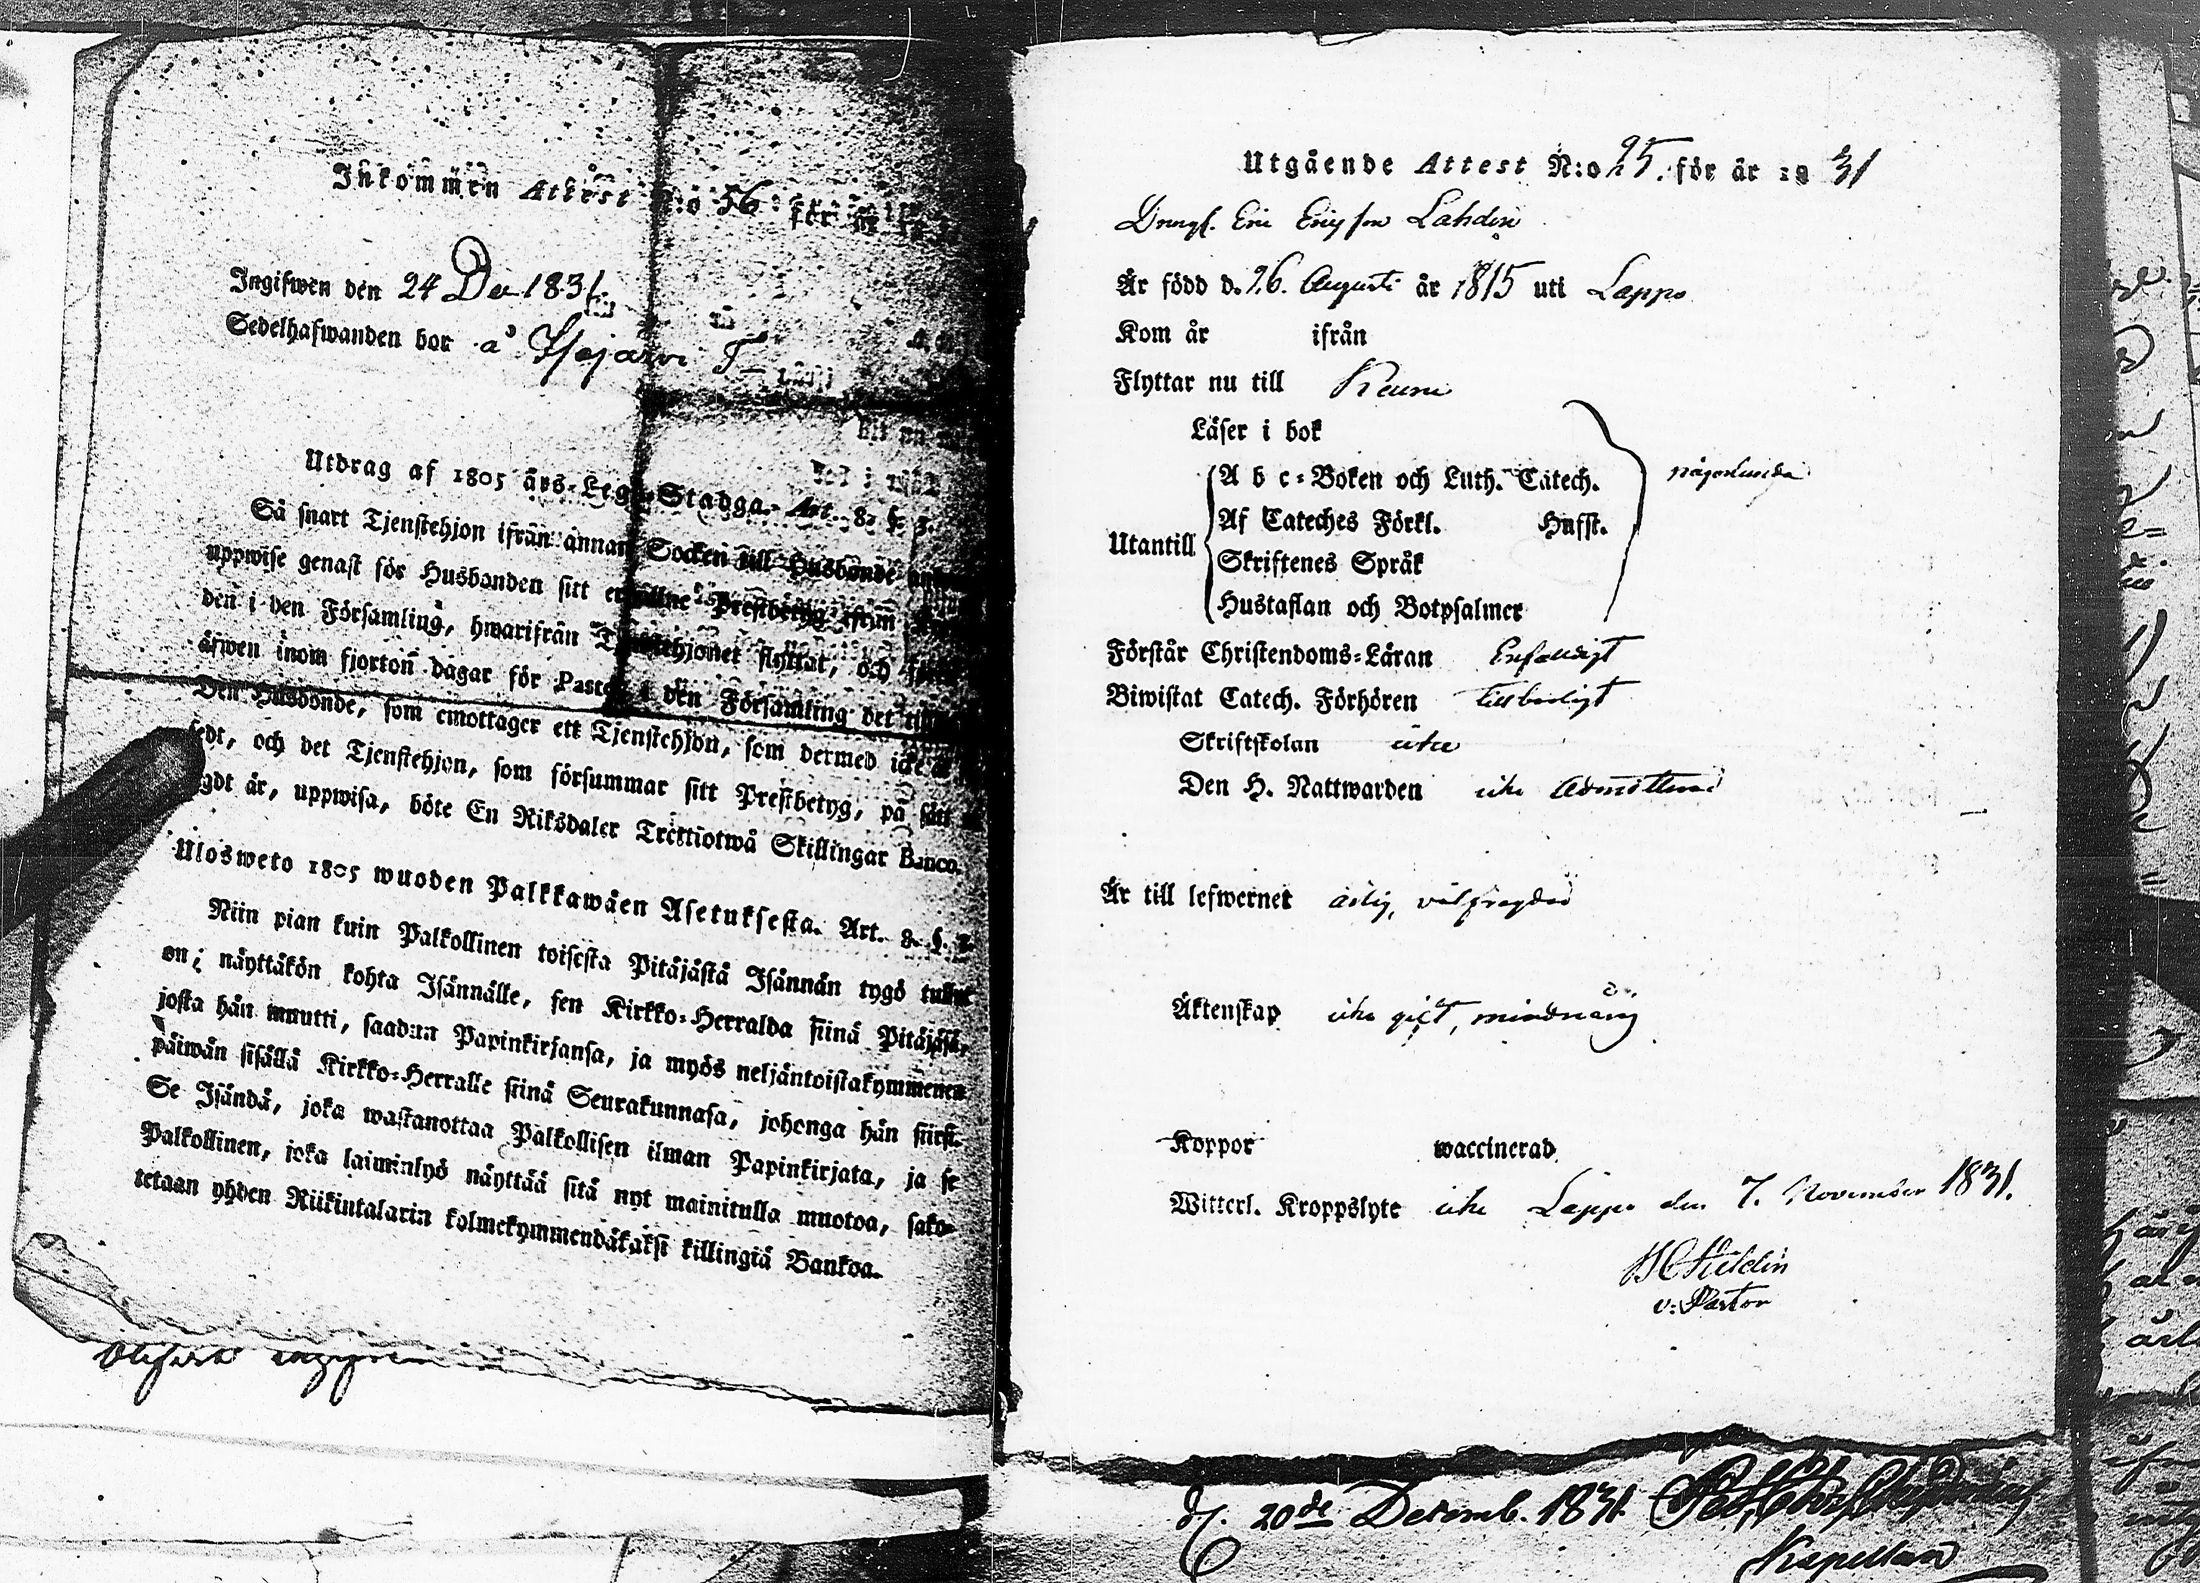 Inkommen Attest N:o 56 för år
Ingifwen den 24 Dec 1831.
Sedelhafwanden bor å
Utdrag af 1805 års Lego-Stadga. Art. 8. §. 3.
Så snart Tjenstehjon ifrån annan Socken till Husbonde
uppwise genast för Husbonden sitt erhållne Prestbetyg ifrån
den i den Församling, hwarifrån Tjenstehjonet flyttat, och
äfwen inom fjorton dagar för Pastor i den Församling det
Den Husbonde, som emottager ett Tjenstehjon, som dermed icke är
sedt, och det Tjenstehjon, som försummar sitt Prestbetyg, på sätt
sagdt är, uppwisa, böte En Riksdaler Trettiotwå Skillingar Banco.
Ulosweto 1805 wuoden Palkkawäen Asetuksesta. Art. 8. §. 3.
Niin pian kuin Palkollinen toisesta Pitäjästä Isännän tygö tullut
on; näyttäkön kohta Isännälle, sen Kirkko-Herralda siinä Pitäjäsä,
josta hän muutti, saadun Papinkirjansa, ja myös neljäntoistakymmenen
päiwän sisällä Kirkko-Herralle siinä Seurakunnasa, johonga hän siirsi.
Se Isändä, joka wastanottaa Palkollisen ilman Papinkirjata, ja se
Palkollinen, joka laiminlyö näyttää sitä nyt mainitulla muotoa, sako-
tetaan yhden Riikintalarin kolmekymmendäkaksi killingiä Bankoa.
Utgående Attest N:o 25. för år 18 31
Drengf. Eric Ericsson Lahdin
Är född d. 26. Augusti år 1815 uti Lappo
Kom år ifrån
Flyttar nu till Keuru
Läser i bok
A b c-Boken och Luth. Catech. någorlunda
Af Cateches Förkl. Husst.
Utantill
Skriftenes Språk
Hustaflan och Botpsalmer
Förstår Christendoms-Läran Enfaldigt
Biwistat Catech. Förhören tillbörligt
Skriftskolan icke
Den H. Nattwarden icke Admitterad
Är till lefwernet ärlig, välfrägdad
Äktenskap icke gift, minderårig
Koppor waccinerad
Witterl. Kroppslyte icke Lappo den 7. November 1831.
v: Pastor
d. 20de Decemb. 1831.
Kapellan